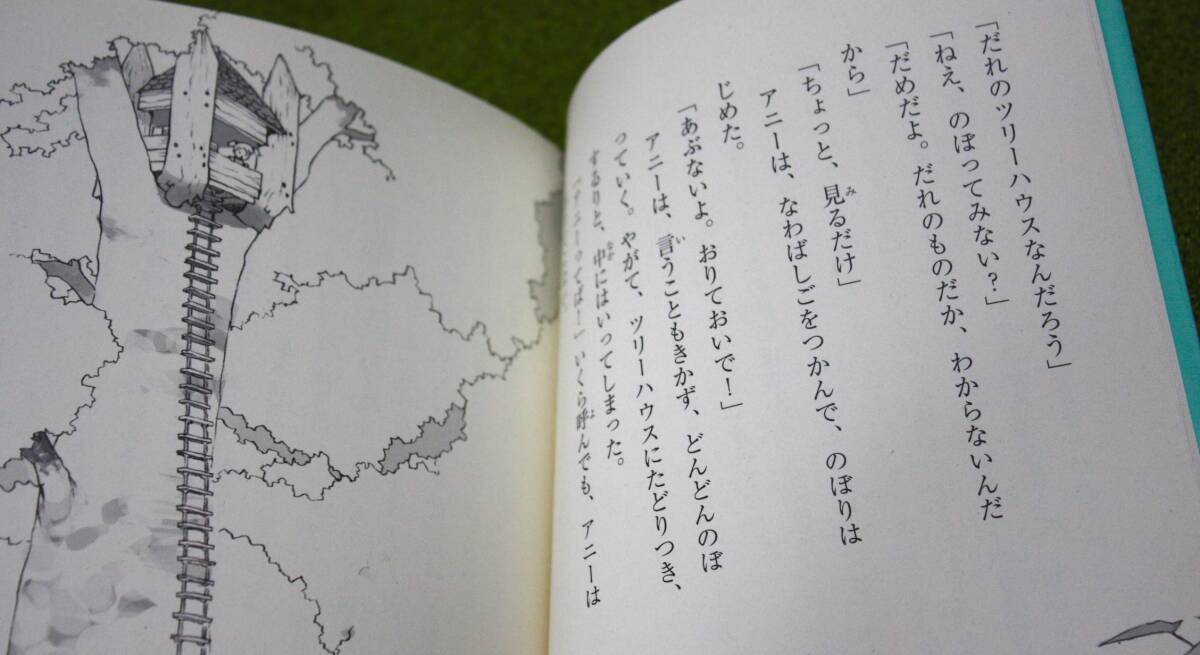 「だれのツリーハウスなんだろう」
「ねえ、のぼってみない?」
「だめだよ。だれのものだか、わからないんだ
から」
「ちょっと、見るだけ」
アニーは、なわばしごをつかんで、のぼりは
じめた。
「あぶないよ。おりておいで!」
アニーは、言うこともきかず、どんどんのぼ
っていく。やがて、ツリーハウスにたどりつき、
するりと、中にはいってしまった。
「アニーってば!」いくら呼んでも、アニーは